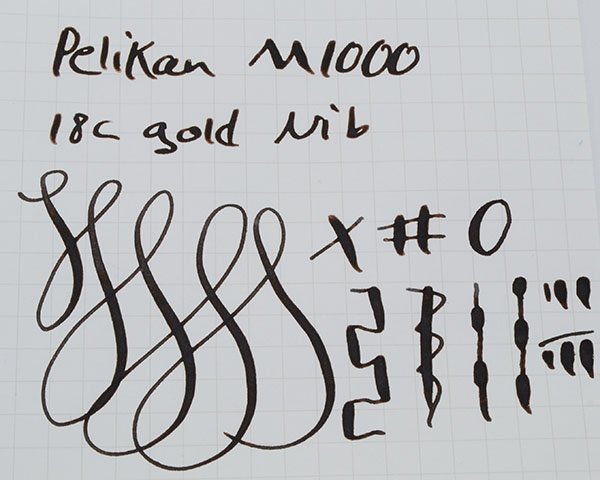 Pelikan M1000
18C gold Nib
X # 0